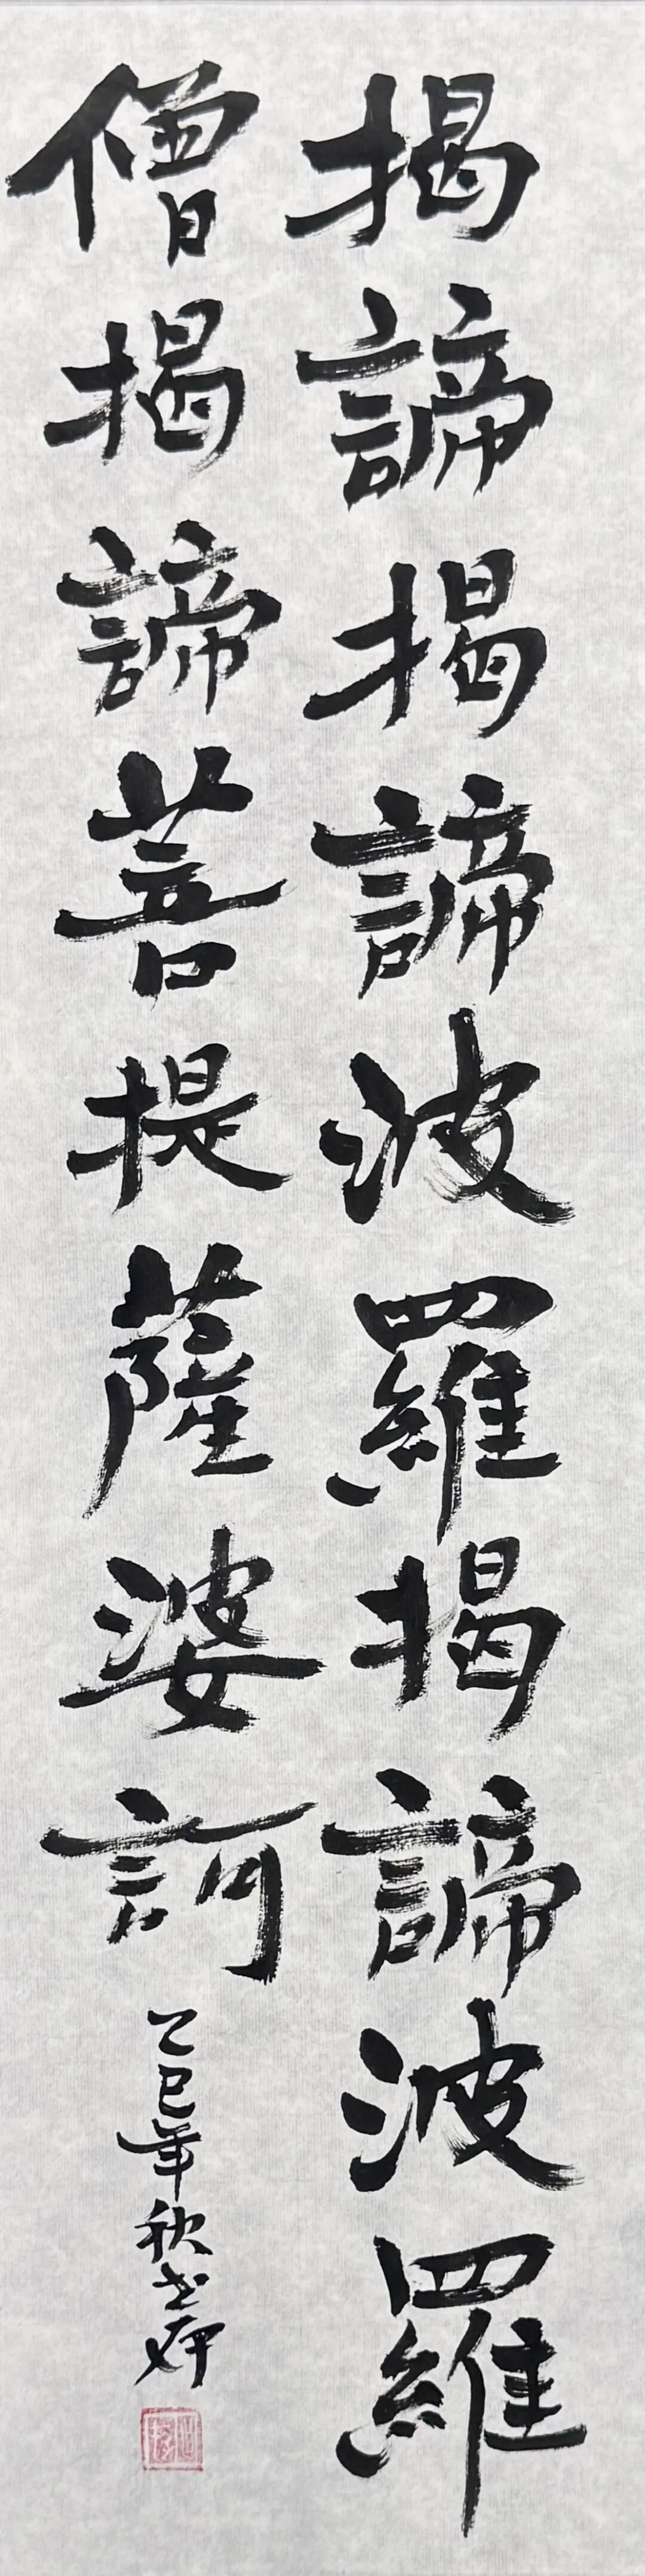 揭諦揭諦波羅揭諦波羅
僧揭諦菩提薩婆訶
乙巳年秋書